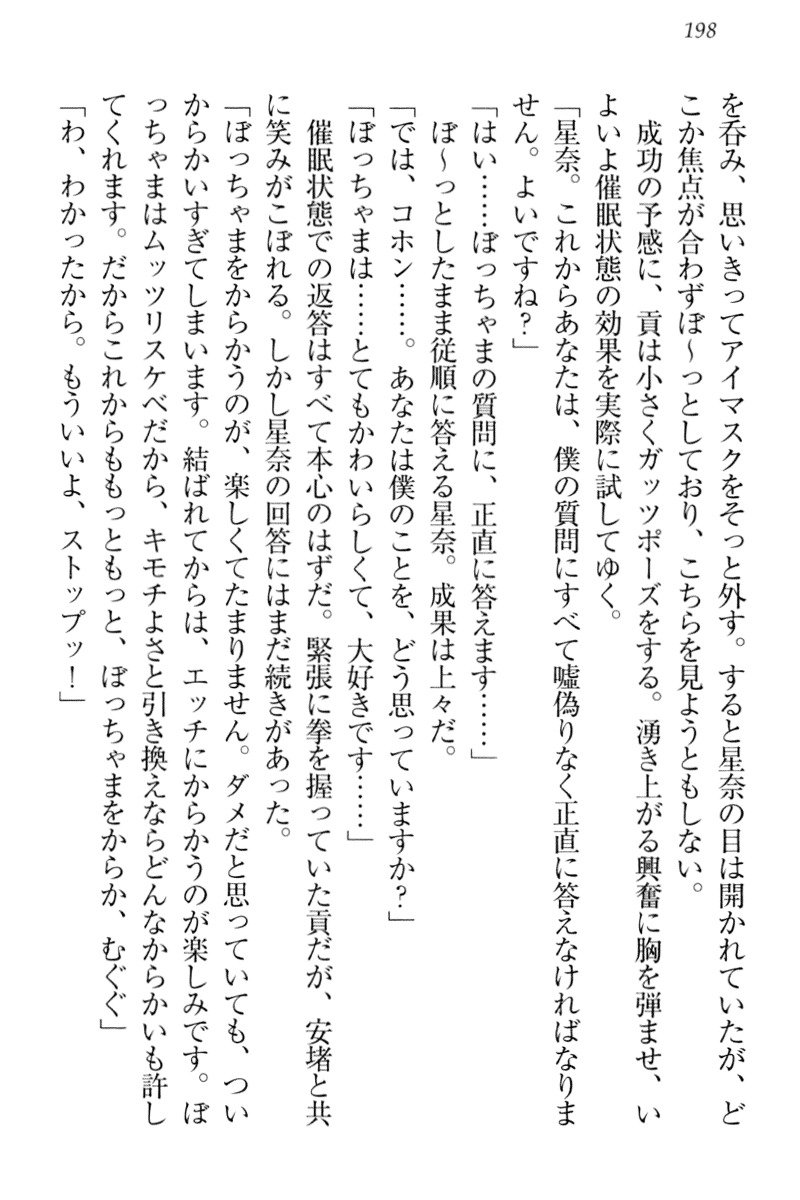 198
を呑み、思いきってアイマスクをそっと外す。すると星奈の目は開かれていたが、ど
こか焦点が合わずぼ〜っとしており、こちらを見ようともしない。
　成功の予感に、貢は小さくガッツポーズをする。湧き上がる興奮に胸を弾ませ、い
よいよ催眠状態の効果を実際に試してゆく。
「星奈。これからあなたは、僕の質問にすべて嘘偽りなく正直に答えなければなりま
せん。よいですね？」
「はい……ぼっちゃまの質問に、正直に答えます……」
　ぼ〜っとしたまま従順に答える星奈。成果は上々だ。
「では、コホン……。あなたは僕のことを、どう思っていますか？」
「ぼっちゃまは……とてもかわいらしくて、大好きです……」
　催眠状態での返答はすべて本心のはずだ。緊張に拳を握っていた貢だが、安堵と共
に笑みがこぼれる。しかし星奈の回答にはまだ続きがあった。
「ぼっちゃまをからかうのが、楽しくてたまりません。ダメだと思っていても、つい
からかいすぎてしまいます。結ばれてからは、エッチにからかうのが楽しみです。ぼ
っちゃまはムッツリスケベだから、キモチよさと引き換えならどんなからかいも許し
てくれます。だからこれからももっともっと、ぼっちゃまをからか、むぐぐ」
「わ、わかったから。もういいよ、ストップッ！」